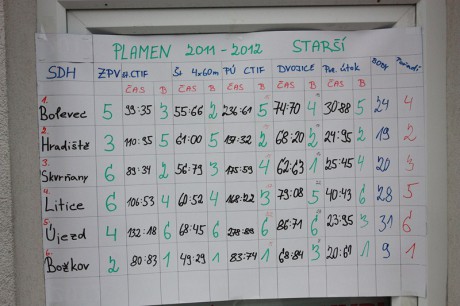 PLAMEN 2011-2012 STARŠÍ
SDH ZPV št.CTIF Št 4x60m PÚ CTIF DVOJICE Pož. útok BODY Pořadí
ČAS B ČAS B ČAS B ČAS B ČAS B
1. Bolevec 5 99:35 3 55:66 2 236:61 5 74:70 4 30:88 5 24 4
2. Hradiště 3 110:95 5 61:00 5 2 68:20 2 24:95 2 19 2
3. Skvrňany 6 89:34 2 56:79 3 175:59 4 62:63 1 25:45 4 20 3
4. Litice 6 106:53 4 60:52 4 168:22 3 79:08 5 40:43 6 28 5
5. Újezd 4 132:18 6 68:45 6 6 86:71 6 23:95 3 31 6
6. Božkov 2 80:83 1 49:29 1 83:74 1 68:84 3 20:61 1 9 1